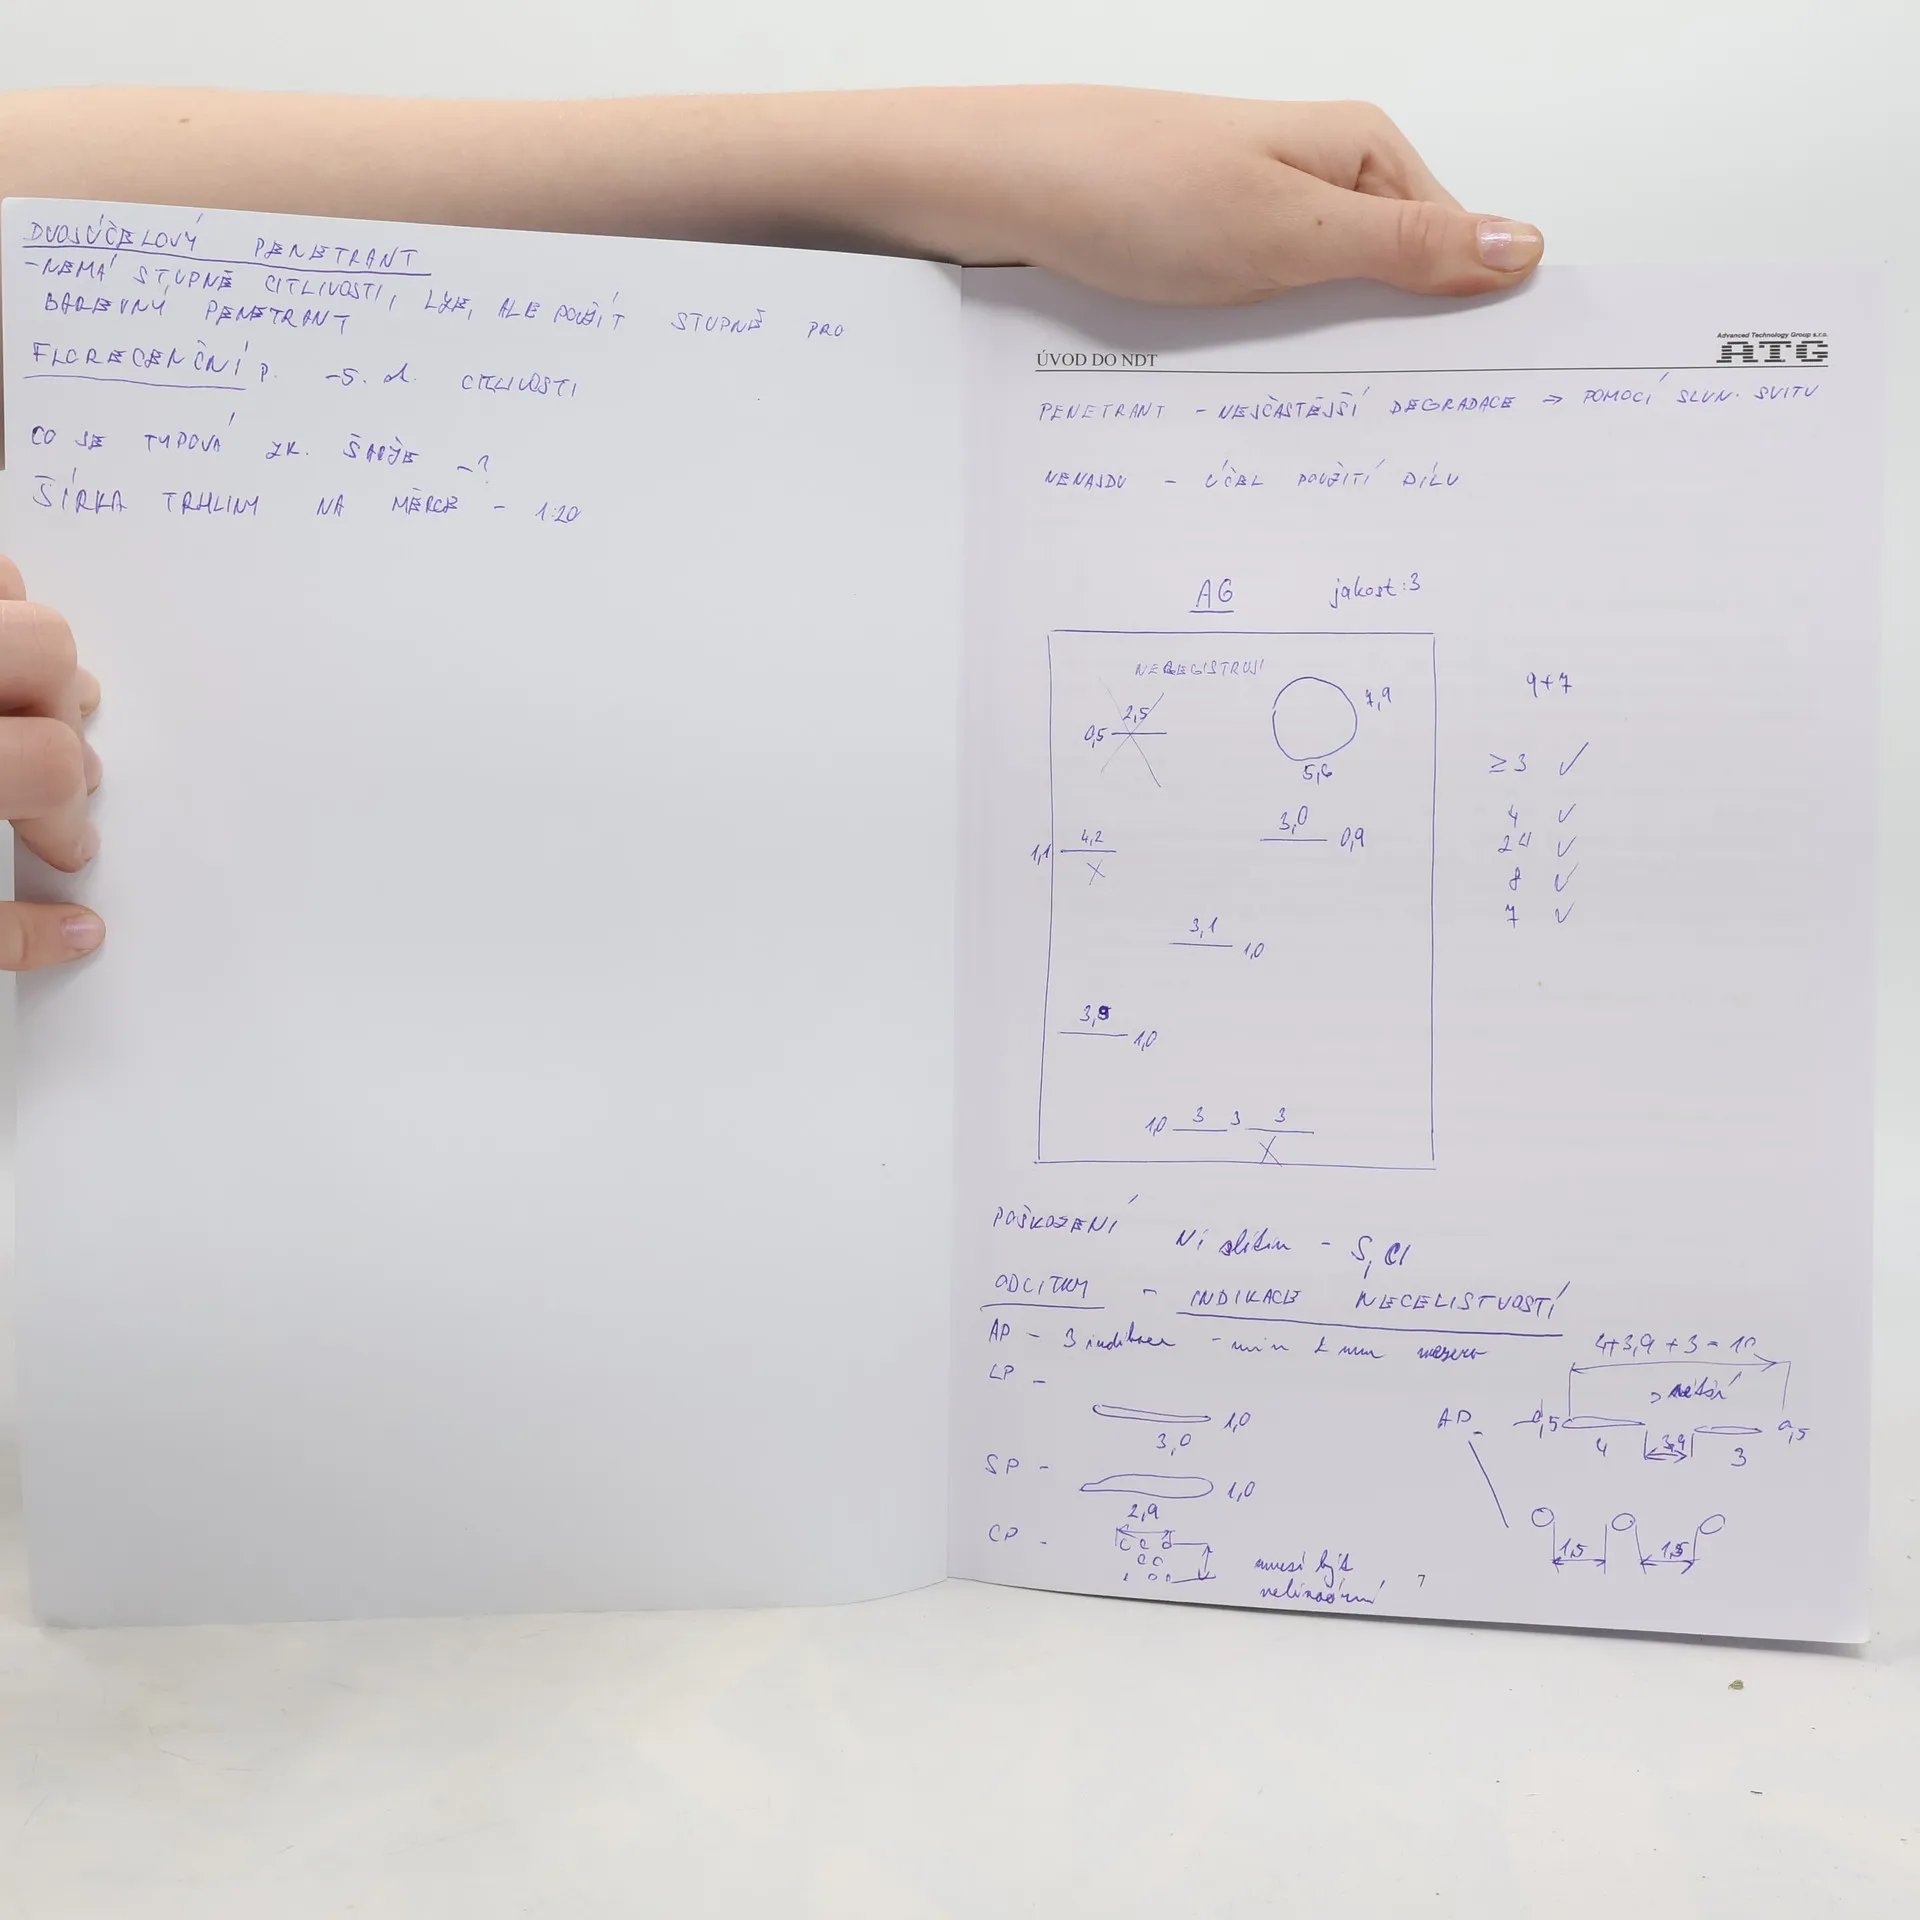 DVOJÚČELOVÝ PENETRANT
-NEMÁ STUPNĚ CITLIVOSTI, LZE, ALE POUŽÍT STUPNĚ PRO
BAREVNÝ PENETRANT
FLORECENČNÍ P. -5. CITLIVOSTI
CO SE TYPOVÁ ZK. ŠARŽE -?
ŠÍRKA TRHLINY NA MĚRCE - 1:20
Advanced Technology Group s.r.o.
ÚVOD DO NDT ATG
PENETRANT - NEJČASTĚJŠÍ DEGRADACE ⇒ POMOCÍ SLUN. SVITU
NENAJDU - ÚČEL POUŽITÍ DÍLU
AG jakost:3
NEREGISTRUJI
9+7
2,5 7,9
0,5
5,6
≥3 ✓
4 ✓
3,0 0,9
4,2
1,1
X
24 ✓
8 ✓
7 ✓
3,1 1,0
3,9 1,0
1,0 3 3 3
X
POŠKOZENÍ Ni slitin - S, Cl
ODČITKY - INDIKACE NECELISTVOSTÍ
AP - 3 indikace - min mm mezera
4+3,9+3=10
LP -
1,0
3,0
AP - 0,5 0,5
4 3,9 3
SP -
1,0
2,9
CP -
musí být
nelineární
1,5 1,5
7